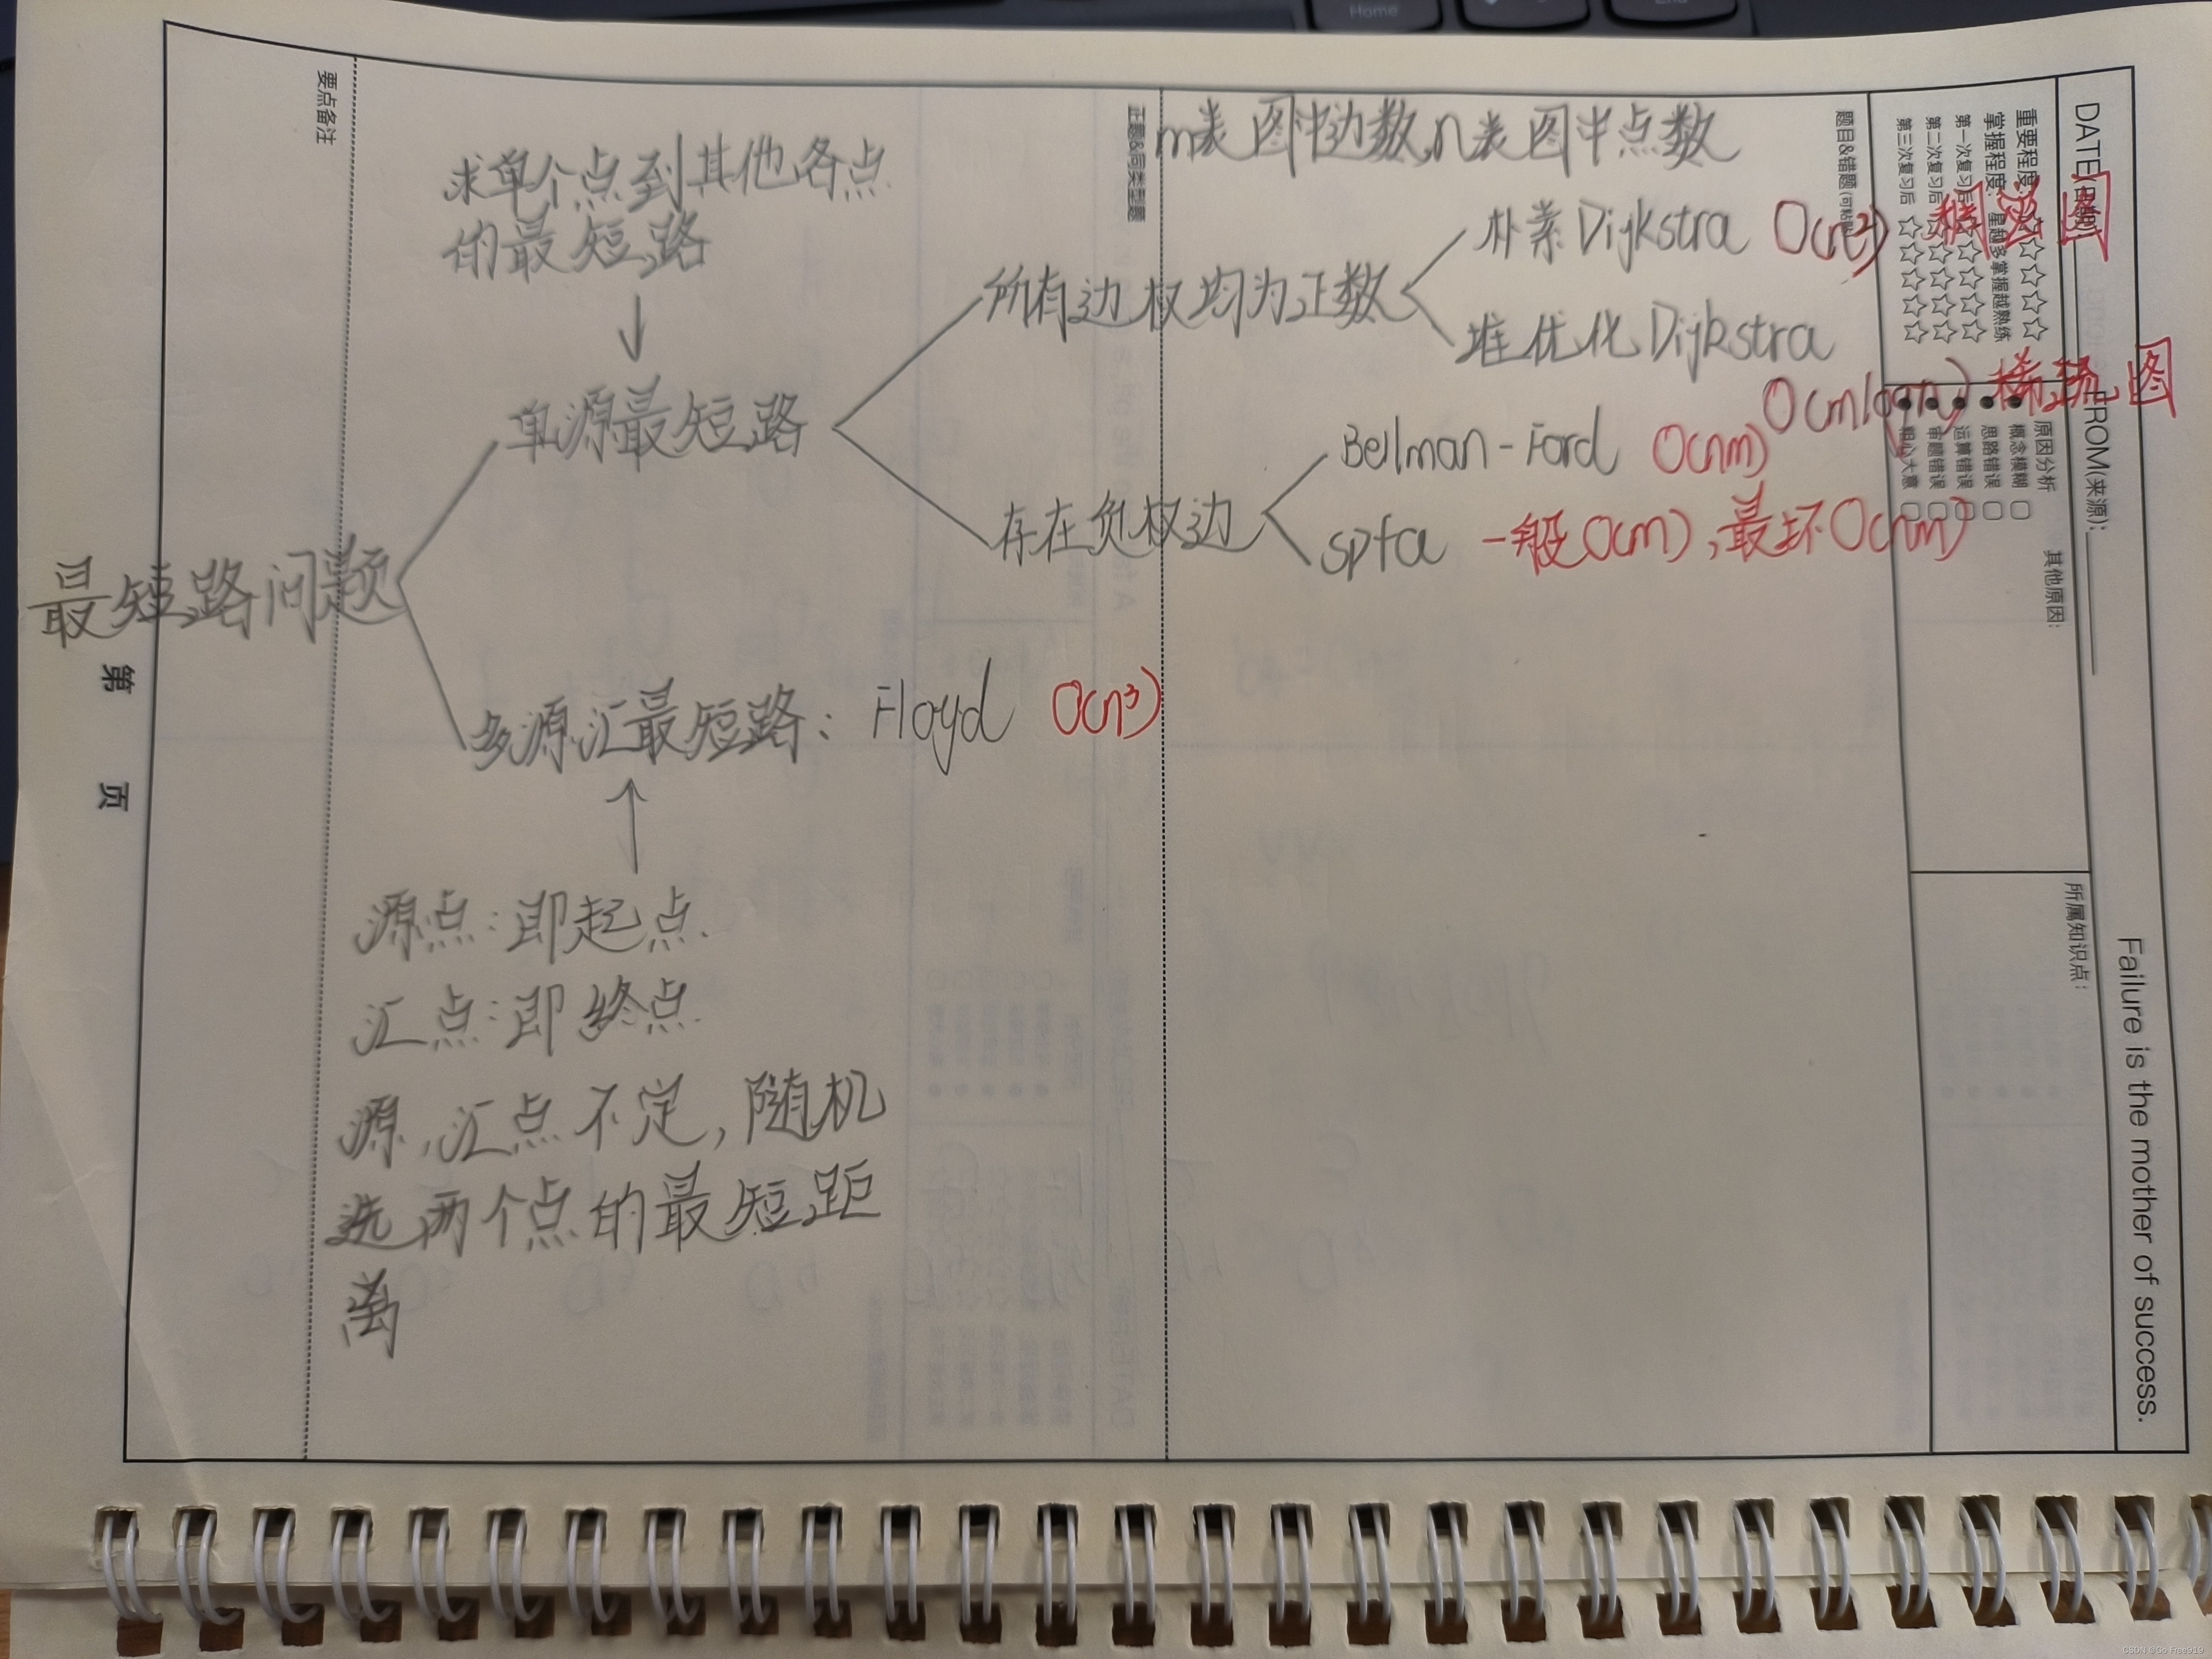 Home
End
m表图中边数,n表图中点数
求单个点到其他各点
的最短路
朴素Dijkstra O(n²) 稠密图
所有边权均为正数
堆优化Dijkstra
O(mlogn) 稀疏图
单源最短路
Bellman-Ford O(nm)
存在负权边
spfa 一般O(m),最坏O(nm)
最短路问题
多源汇最短路: Floyd O(n³)
源点:即起点.
汇点:即终点.
源,汇点不定,随机
选两个点的最短距
离
要点备注
正题&同类型题
题目&错题(可粘贴)
DATE(日期):
FROM(来源):
重要程度:☆☆☆☆☆
掌握程度: 星越多掌握越熟练
第一次复习后 ☆☆☆☆☆
第二次复习后 ☆☆☆☆☆
第三次复习后 ☆☆☆☆☆
原因分析
概念模糊
思路错误
运算错误
审题错误
粗心大意
其他原因:
所属知识点:
Failure is the mother of success.
第 页
CSDN @Go Free919